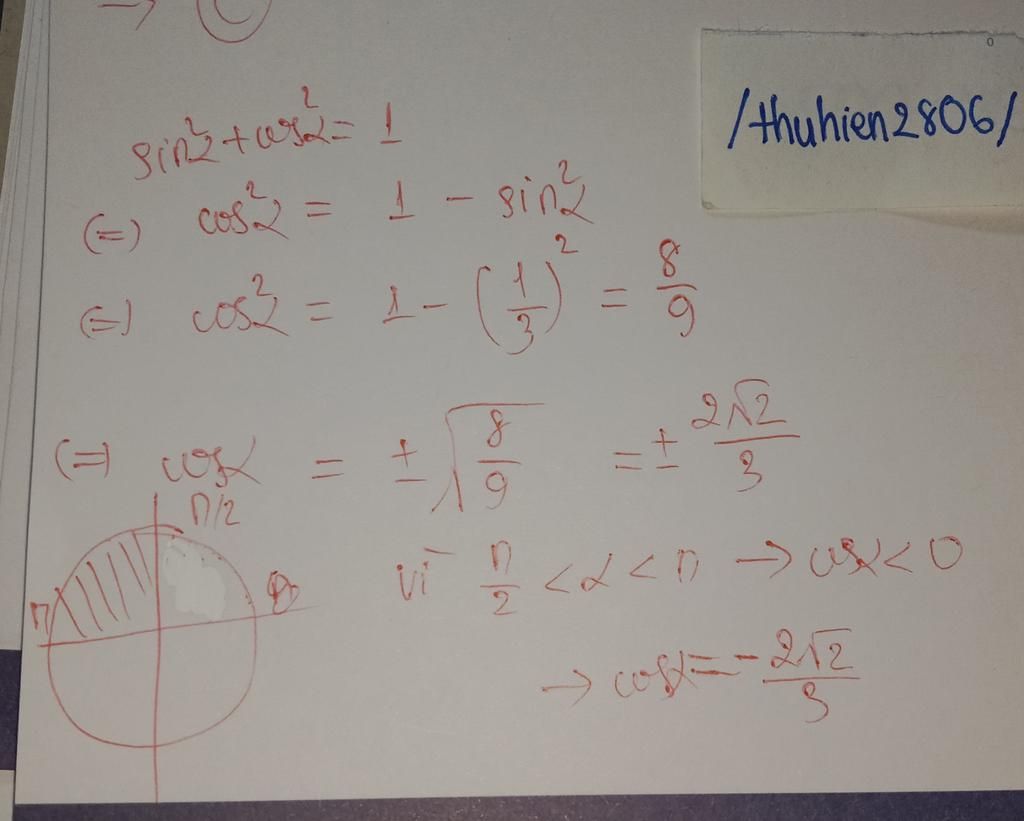 → C
/thuhien2806/
sin²α + cos²α = 1
(=) cos²α = 1 - sin²α
(=) cos²α = 1 - (1/3)² = 8/9
(=) cosα = ± √(8/9) = ± 2√2/3
π/2
π
0
vì π/2 < α < π → cosα < 0
→ cosα = - 2√2/3